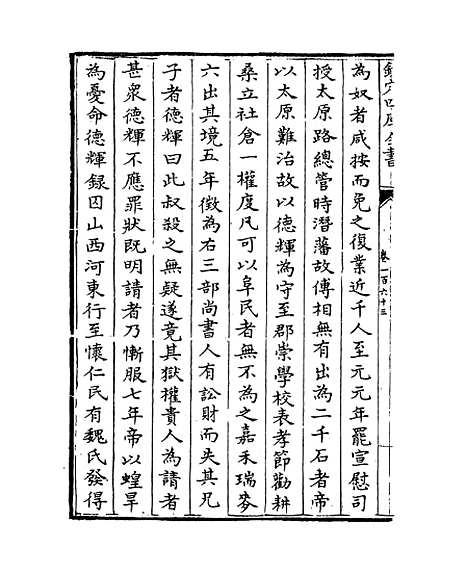 欽定四庫全書
卷一百六十三
為奴者咸按而免之復業近千人至元元年罷宣慰司
授太原路總管時潛藩故傅相無有出為二千石者帝
以太原難治故以德輝為守至郡崇學校表孝節勸耕
桑立社倉一權度凡可以阜民者無不為之嘉禾瑞麥
六出其境五年徵為右三部尚書人有訟財而失其兄
子者德輝曰此叔殺之無疑遂竟其獄權貴人為請者
甚衆德輝不應罪狀既明請者乃慚服七年帝以蝗旱
為憂命德輝録囚山西河東行至懷仁民有魏氏發得